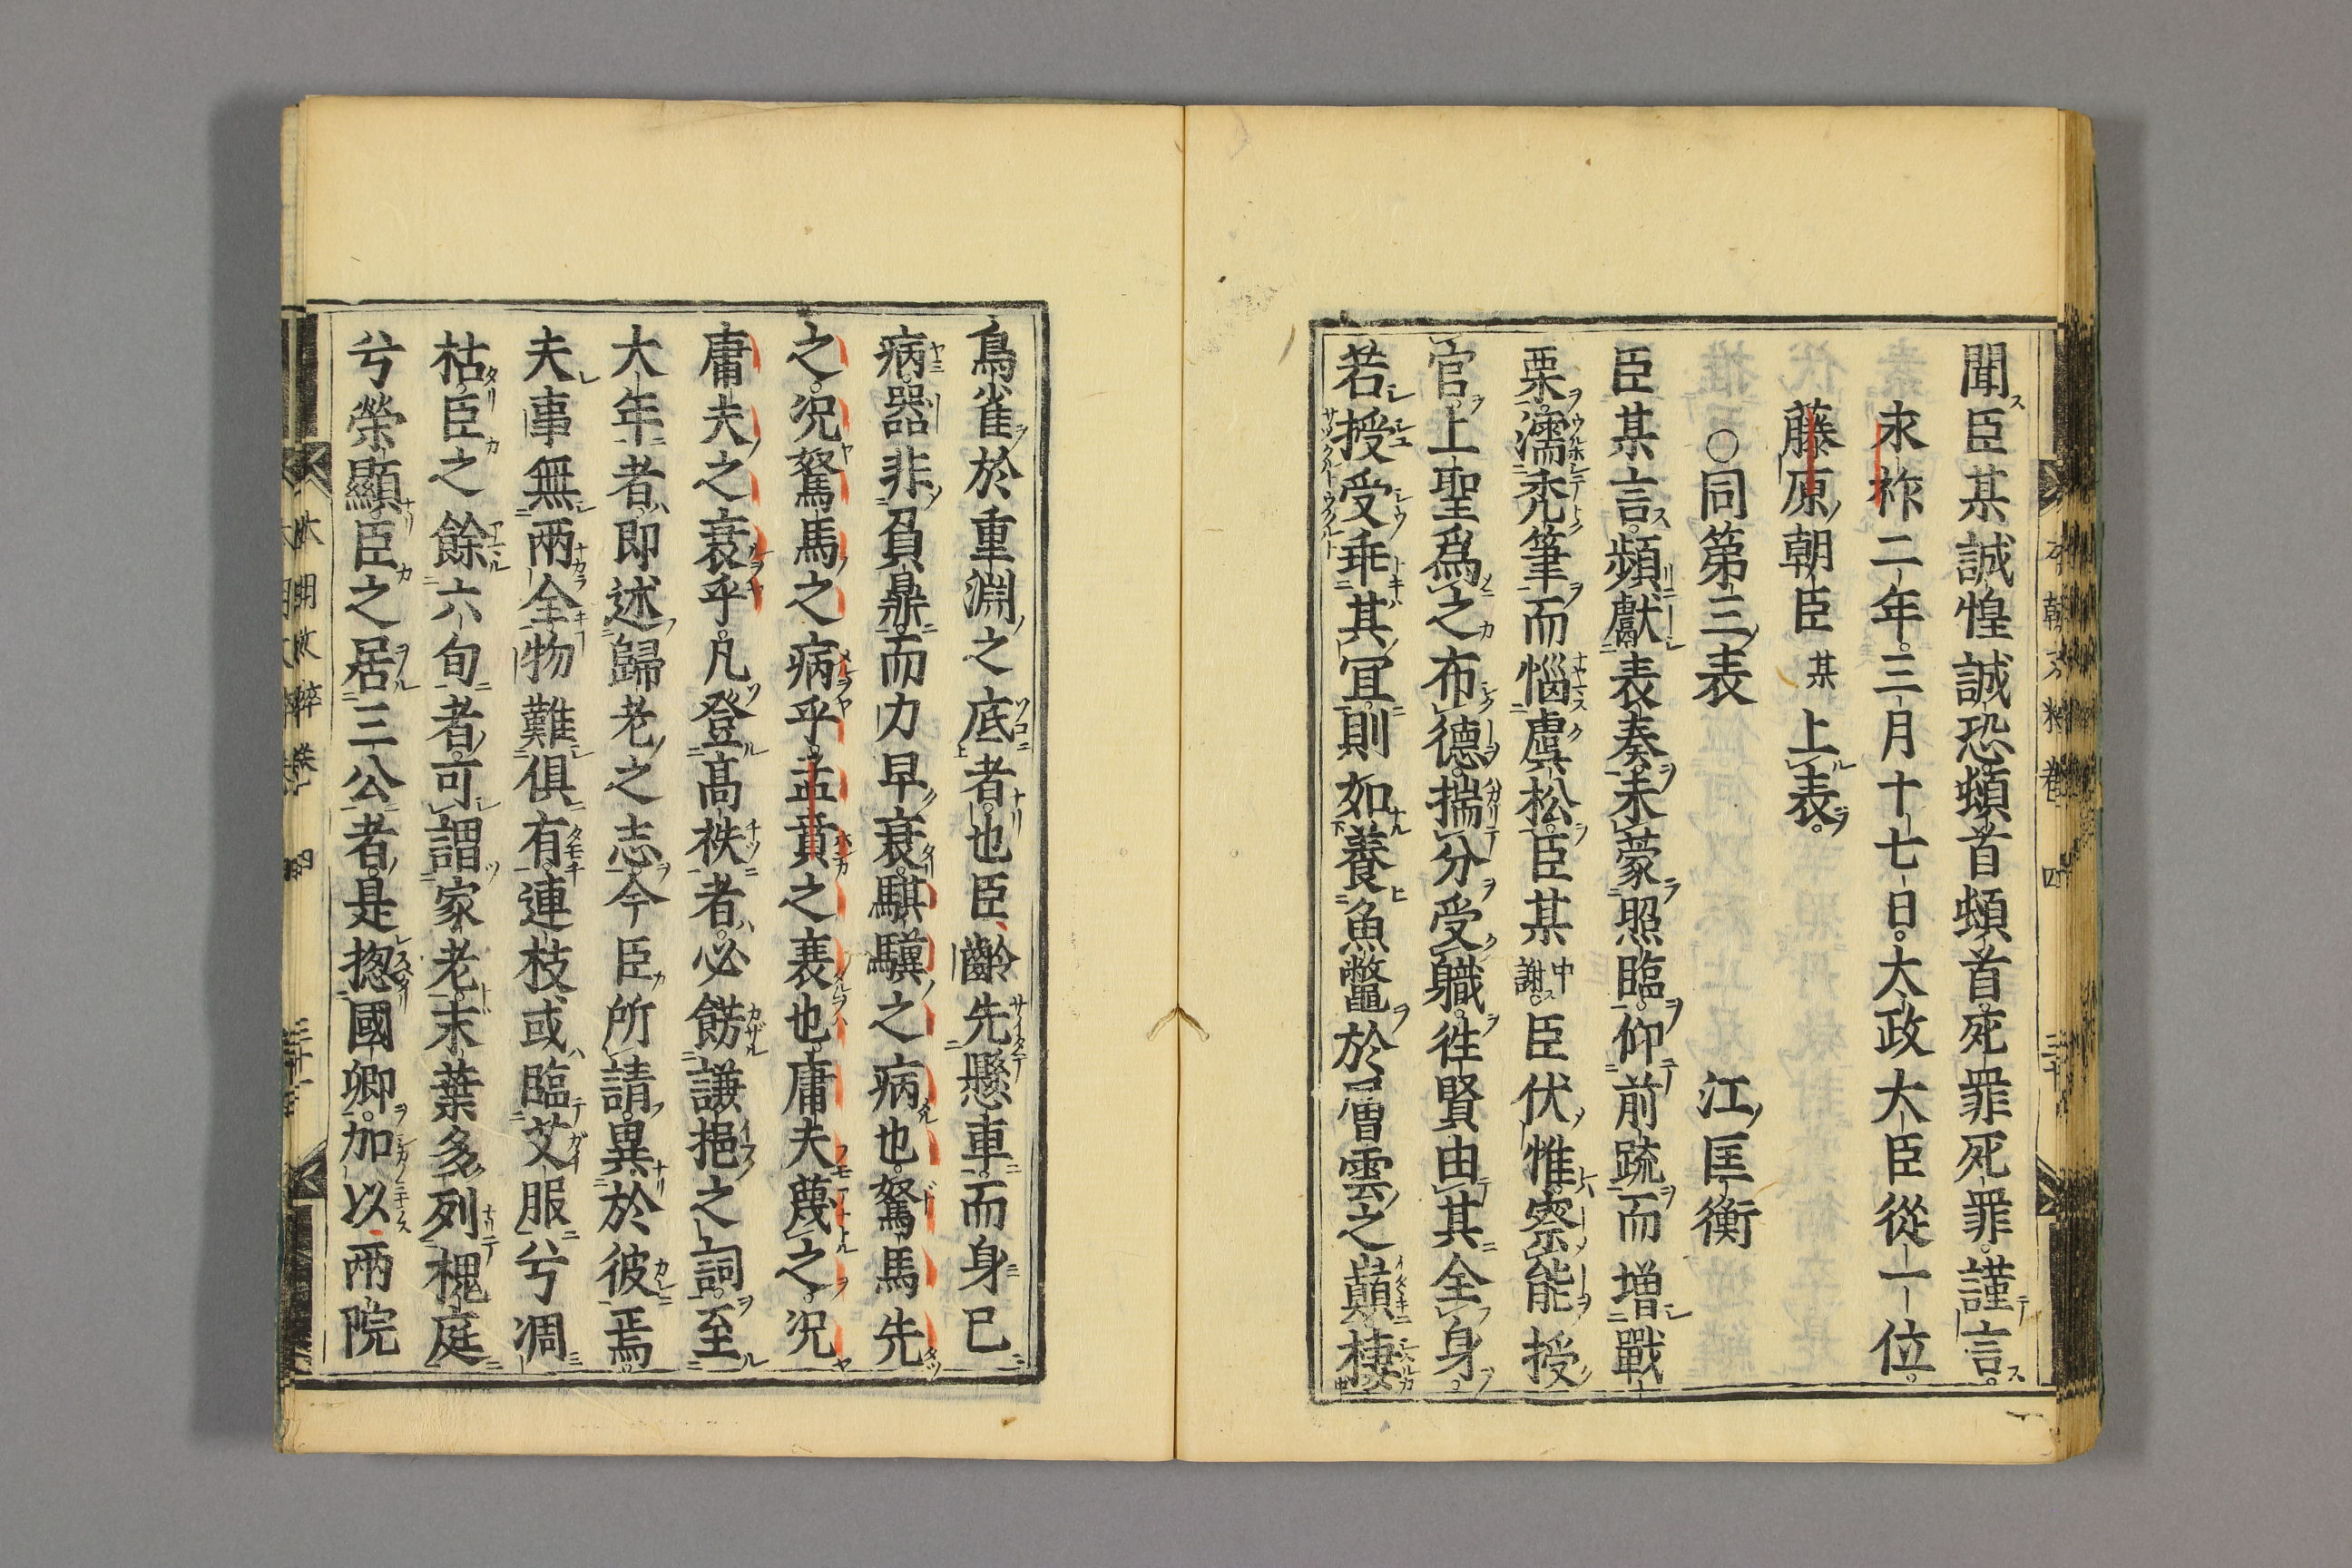 聞臣某誠惶誠恐頓首頓首死罪死罪謹言
永祚二年三月十七日太政大臣從一位
藤原朝臣某上表
○同第三表　江匡衡
臣某言頻獻表奏未蒙照臨仰前疏而增戰
栗濡禿筆而惱虞松臣某中謝臣伏惟察能授
官上聖爲之布德揣分受職往賢由其全身
若授受乖其冝則如養魚鼈於層雲之巓棲
鳥雀於重淵之底者也臣齡先懸車而身已
病器非負鼎而力早衰騏驥之病也駑馬先
之況駑馬之病乎孟賁之衰也庸夫蔑之況
庸夫之衰乎凡登高秩者必餝謙挹之詞至
大年者即述歸老之志今臣所請異於彼焉
夫事無兩全物難俱有連枝或臨艾服兮凋
枯臣之餘六旬者可謂家老末葉多列槐庭
兮榮顯臣之居三公者是揔國卿加以兩院